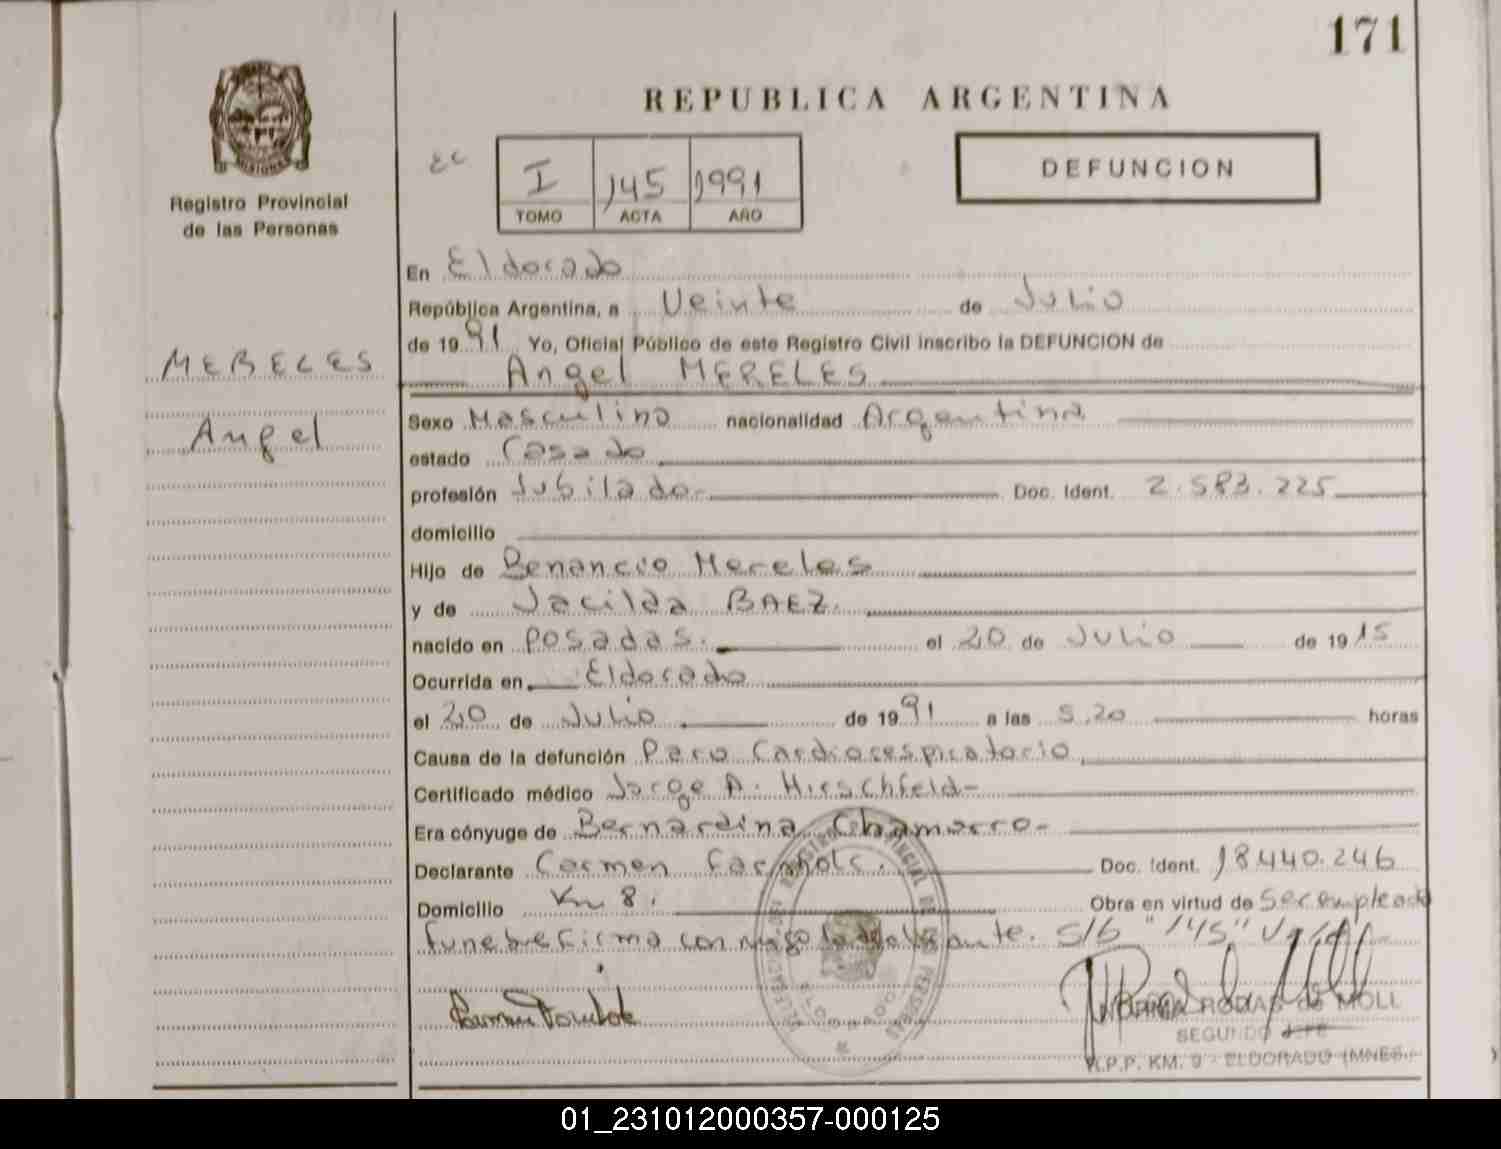 171
REPUBLICA ARGENTINA
Registro Provincial
de las Personas
I 145 1991
TOMO ACTA AÑO
DEFUNCION
MERELES
Angel
En Eldorado
República Argentina, a Veinte de Julio
de 1991 Yo, Oficial Público de este Registro Civil inscribo la DEFUNCION de
Angel MERELES
Sexo Masculino nacionalidad Argentina
estado Casado
profesión Jubilado.- Doc. Ident. 2.583.225
domicilio
Hijo de Benancio Mereles
y de Jacilda BAEZ.
nacido en Posadas. el 20 de Julio de 1915
Ocurrida en Eldorado
el 20 de Julio de 1991 a las 5.20 horas
Causa de la defunción Paro Cardiorespiratorio
Certificado médico Jorge A. Hirschfeld-
Era cónyuge de Bernardina Chamorro-
Declarante Carmen Doc. Ident. 18.440.246
Domicilio Km 8. Obra en virtud de Ser empleado
funebre firma con migo S/b "145"
de MOLL
SEGUNDO JEFE
R.P.P. KM. 9 - ELDORADO (MNES.-
01_231012000357-000125